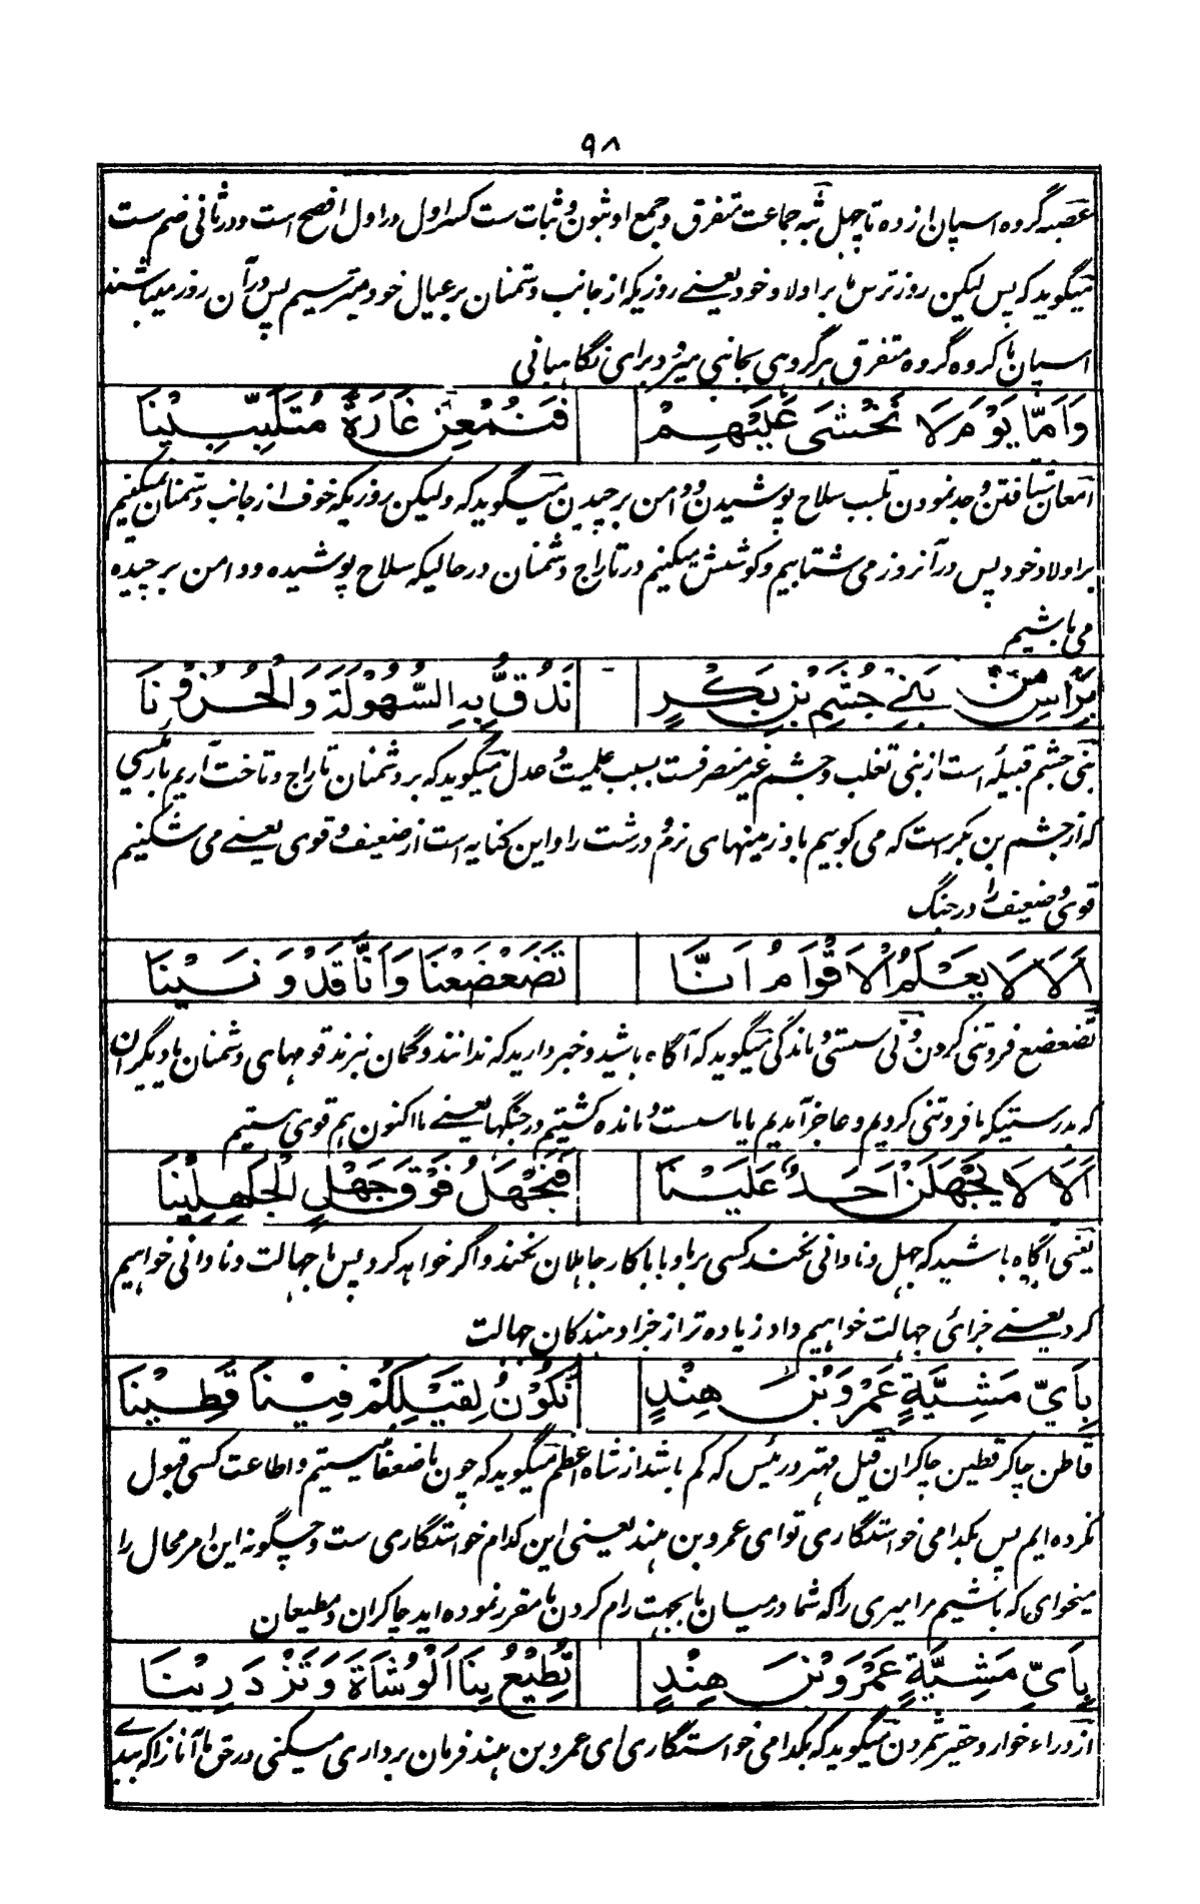 ۹۸
عصبه گروه اسپان از ده تا چهل ثبه جماعت متفرق و جمع او ثبون و ثبات ست کسر اول در اول افصح است و در ثانی ضم ست
میگوید که پس لیکن روز ترس ما بر اولاد خود یعنے روزیکه از جانب دشمنان بر عیال خود میترسیم پس در آن روز میباشند
اسپان ما گروه گروه متفرق هر گروهی بجانبی میرود برای نگاهبانی
وَاَمَّا يَوْمَ لَا نَخْشَى عَلَيْهِمْ فَنُمْعِنُ غَارَةً مُتَلَبِّبِيْنَا
امعان شتافتن و جد نمودن تلبب سلاح پوشیدن و دامن برچیدن میگوید که ولیکن روزیکه خوف از جانب دشمنان نمیکنیم
بر اولاد خود پس در آنروز می شتابیم و کوشش میکنیم در تاراج دشمنان در حالیکه سلاح پوشیده و دامن برچیده
می باشیم
بِرَأْسٍ مِنْ بَنِيْ جُشَمِ بْنِ بَكْرٍ نَدُقُّ بِهِ السُّهُوْلَةَ وَالْحُزُوْنَا
بنی جشم قبیله است از بنی تغلب و جشم غیر منصرفست بسبب علمیت و عدل میگوید که بر دشمنان تاراج و تاخت آریم با رئیسی
که از جشم بن بکر است که می کوبیم با و زمینهای نرم و درشت را و این کنایه است از ضعیف و قوی یعنے می شکنیم
قوی و ضعیف را در جنگ
اَلَا لَا يَعْلَمُ الْاَقْوَامُ اَنَّا تَضَعْضَعْنَا وَاَنَّا قَدْ وَنَيْنَا
تضعضع فروتنی کردن ونی سستی و ماندگی میگوید که آگاه باشید و خبر دارید که ندانند و گمان نبرند قومهای دشمنان یا دیگران
که بدرستیکه ما فروتنی کردیم و عاجز آمدیم یا ما سست و مانده گشتیم در جنگها یعنے ما اکنون هم قوی هستیم
اَلَا لَا يَجْهَلَنْ اَحَدٌ عَلَيْنَا فَنَجْهَلُ فَوْقَ جَهْلِ الْجَاهِلِيْنَا
یعنی آگاه باشید که جهل و نادانی نکند کسی بر ما و با ما کار جاهلان نکند و اگر خواهد کرد پس ما جهالت و نادانی خواهیم
کرد یعنے جزائی جهالت خواهیم داد زیاده تر از جزا دهندگان جهالت
بِاَيِّ مَشِيَّةٍ عَمْرَو بْنَ هِنْدٍ نَكُوْنُ لِقَيْلِكُمْ فِيْنَا قَطِيْنَا
قاطن چاکر قطین چاکران قیل مهتر و رئیس که کم باشد از شاه اعظم میگوید که چون ما ضعفا نیستیم و اطاعت کسی قبول
نکرده ایم پس بکدامی خواستگاری تو ای عمرو بن هند یعنی این کدام خواستگاری ست و چگونه این امر محال را
میخواهی که باشیم مر امیری را که شما درمیان ما بجهت رام کردن ما مقرر نموده اید چاکران و مطیعان
بِاَيِّ مَشِيَّةٍ عَمْرَو بْنَ هِنْدٍ تُطِيْعُ بِنَا الْوُشَاةَ وَتَزْدَرِيْنَا
ازدراء خوار و حقیر شمردن میگوید که بکدامی خواستگاری ای عمرو بن هند فرمان برداری میکنی در حق ما آنانرا که ببدی